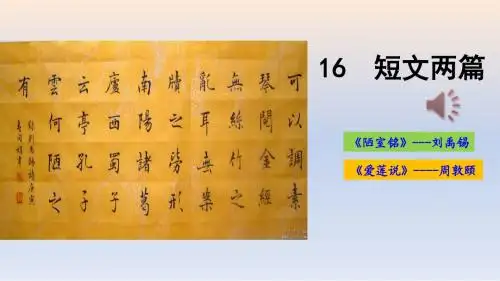 可以調素
琴閱金經
無絲竹之
亂耳無案
牘之勞形
南陽諸葛
廬西蜀子
云亭孔子
雲何陋之
有
16 短文两篇
《陋室铭》---刘禹锡
《爱莲说》----周敦颐